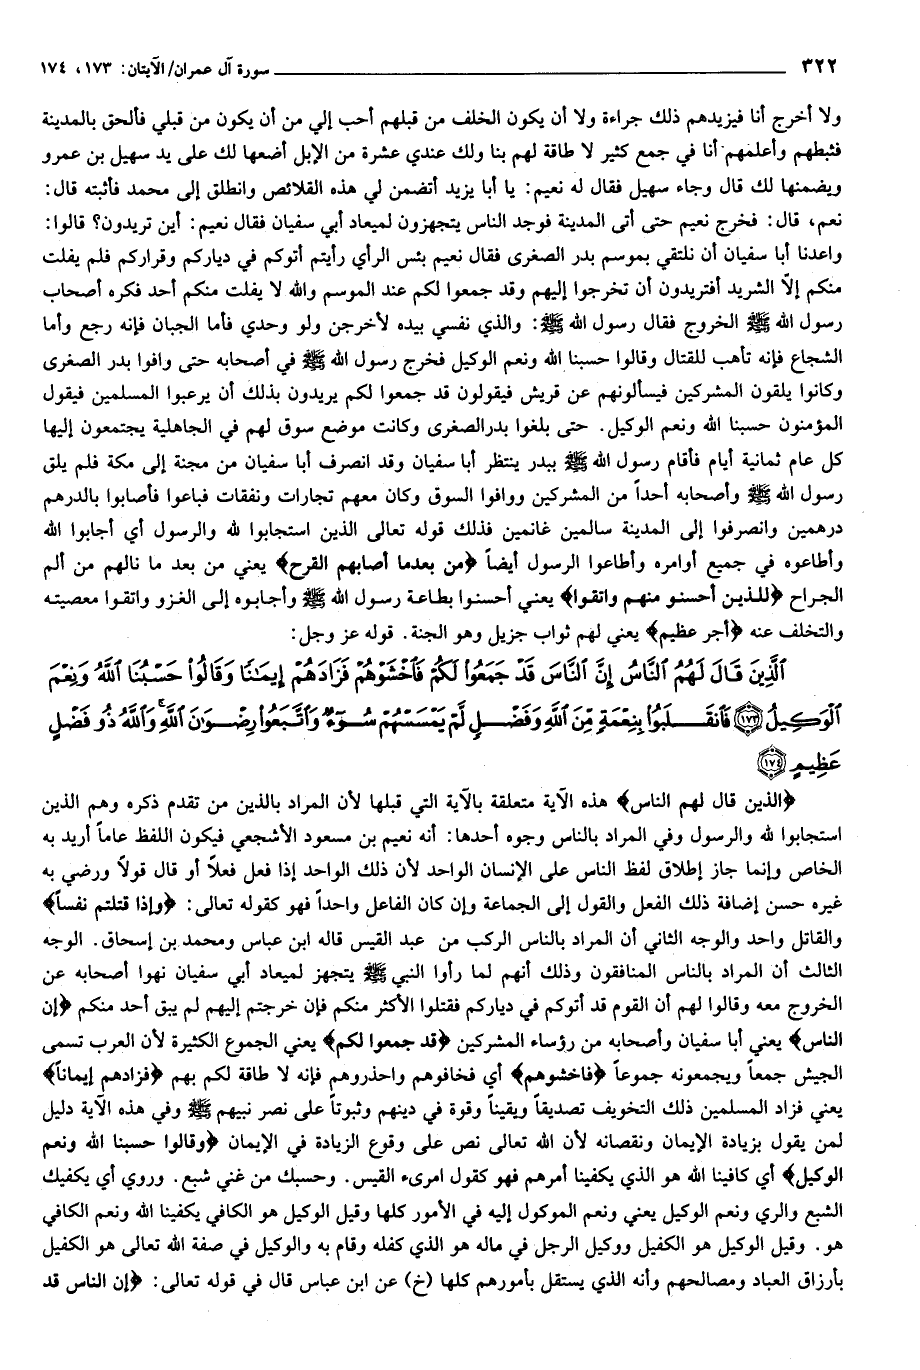 ٣٢٢ سورة آل عمران/ الآيتان: ١٧٣، ١٧٤
ولا أخرج أنا فيزيدهم ذلك جراءة ولا أن يكون الخلف من قبلهم أحب إلي من أن يكون من قبلي فألحق بالمدينة
فثبطهم وأعلمهم أنا في جمع كثير لا طاقة لهم بنا ولك عندي عشرة من الإبل أضعها لك على يد سهيل بن عمرو
ويضمنها لك قال وجاء سهيل فقال له نعيم: يا أبا يزيد أتضمن لي هذه القلائص وانطلق إلى محمد فأثبته قال:
نعم، قال: فخرج نعيم حتى أتى المدينة فوجد الناس يتجهزون لميعاد أبي سفيان فقال نعيم: أين تريدون؟ قالوا:
واعدنا أبا سفيان أن نلتقي بموسم بدر الصغرى فقال نعيم بئس الرأي رأيتم أتوكم في دياركم وقراركم فلم يفلت
منكم إلّا الشريد أفتريدون أن تخرجوا إليهم وقد جمعوا لكم عند الموسم والله لا يفلت منكم أحد فكره أصحاب
رسول الله ﷺ الخروج فقال رسول الله ﷺ: والذي نفسي بيده لأخرجن ولو وحدي فأما الجبان فإنه رجع وأما
الشجاع فإنه تأهب للقتال وقالوا حسبنا الله ونعم الوكيل فخرج رسول الله ﷺ في أصحابه حتى وافوا بدر الصغرى
وكانوا يلقون المشركين فيسألونهم عن قريش فيقولون قد جمعوا لكم يريدون بذلك أن يرعبوا المسلمين فيقول
المؤمنون حسبنا الله ونعم الوكيل. حتى بلغوا بدرالصغرى وكانت موضع سوق لهم في الجاهلية يجتمعون إليها
كل عام ثمانية أيام فأقام رسول الله ﷺ ببدر ينتظر أبا سفيان وقد انصرف أبا سفيان من مجنة إلى مكة فلم يلق
رسول الله ﷺ وأصحابه أحداً من المشركين ووافوا السوق وكان معهم تجارات ونفقات فباعوا فأصابوا بالدرهم
درهمين وانصرفوا إلى المدينة سالمين غانمين فذلك قوله تعالى الذين استجابوا لله والرسول أي أجابوا الله
وأطاعوه في جميع أوامره وأطاعوا الرسول أيضاً ﴿من بعدما أصابهم القرح﴾ يعني من بعد ما نالهم من ألم
الجراح ﴿للذين أحسنو منهم واتقوا﴾ يعني أحسنوا بطاعة رسول الله ﷺ وأجابوه إلى الغزو واتقوا معصيته
والتخلف عنه ﴿أجر عظيم﴾ يعني لهم ثواب جزيل وهو الجنة. قوله عز وجل:
ٱلَّذِينَ قَالَ لَهُمُ ٱلنَّاسُ إِنَّ ٱلنَّاسَ قَدْ جَمَعُوا۟ لَكُمْ فَٱخْشَوْهُمْ فَزَادَهُمْ إِيمَـٰنًا وَقَالُوا۟ حَسْبُنَا ٱللَّهُ وَنِعْمَ
ٱلْوَكِيلُ ﴿١٧٣﴾ فَٱنقَلَبُوا۟ بِنِعْمَةٍ مِّنَ ٱللَّهِ وَفَضْلٍ لَّمْ يَمْسَسْهُمْ سُوٓءٌ وَٱتَّبَعُوا۟ رِضْوَٰنَ ٱللَّهِ ۗ وَٱللَّهُ ذُو فَضْلٍ
عَظِيمٍ ﴿١٧٤﴾
﴿الذين قال لهم الناس﴾ هذه الآية متعلقة بالآية التي قبلها لأن المراد بالذين من تقدم ذكره وهم الذين
استجابوا لله والرسول وفي المراد بالناس وجوه أحدها: أنه نعيم بن مسعود الأشجعي فيكون اللفظ عاماً أريد به
الخاص وإنما جاز إطلاق لفظ الناس على الإنسان الواحد لأن ذلك الواحد إذا فعل فعلاً أو قال قولاً ورضي به
غيره حسن إضافة ذلك الفعل والقول إلى الجماعة وإن كان الفاعل واحداً فهو كقوله تعالى: ﴿وإذا قتلتم نفساً﴾
والقاتل واحد والوجه الثاني أن المراد بالناس الركب من عبد القيس قاله ابن عباس ومحمد بن إسحاق. الوجه
الثالث أن المراد بالناس المنافقون وذلك أنهم لما رأوا النبي ﷺ يتجهز لميعاد أبي سفيان نهوا أصحابه عن
الخروج معه وقالوا لهم أن القوم قد أتوكم في دياركم فقتلوا الأكثر منكم فإن خرجتم إليهم لم يبق أحد منكم ﴿إن
الناس﴾ يعني أبا سفيان وأصحابه من رؤساء المشركين ﴿قد جمعوا لكم﴾ يعني الجموع الكثيرة لأن العرب تسمى
الجيش جمعاً ويجمعونه جموعاً ﴿فاخشوهم﴾ أي فخافوهم واحذروهم فإنه لا طاقة لكم بهم ﴿فزادهم إيماناً﴾
يعني فزاد المسلمين ذلك التخويف تصديقاً ويقيناً وقوة في دينهم وثبوتاً على نصر نبيهم ﷺ وفي هذه الآية دليل
لمن يقول بزيادة الإيمان ونقصانه لأن الله تعالى نص على وقوع الزيادة في الإيمان ﴿وقالوا حسبنا الله ونعم
الوكيل﴾ أي كافينا الله هو الذي يكفينا أمرهم فهو كقول امرىء القيس. وحسبك من غني شبع. وروي أي يكفيك
الشبع والري ونعم الوكيل يعني ونعم الموكول إليه في الأمور كلها وقيل الوكيل هو الكافي يكفينا الله ونعم الكافي
هو. وقيل الوكيل هو الكفيل ووكيل الرجل في ماله هو الذي كفله وقام به والوكيل في صفة الله تعالى هو الكفيل
بأرزاق العباد ومصالحهم وأنه الذي يستقل بأمورهم كلها (خ) عن ابن عباس قال في قوله تعالى: ﴿إن الناس قد